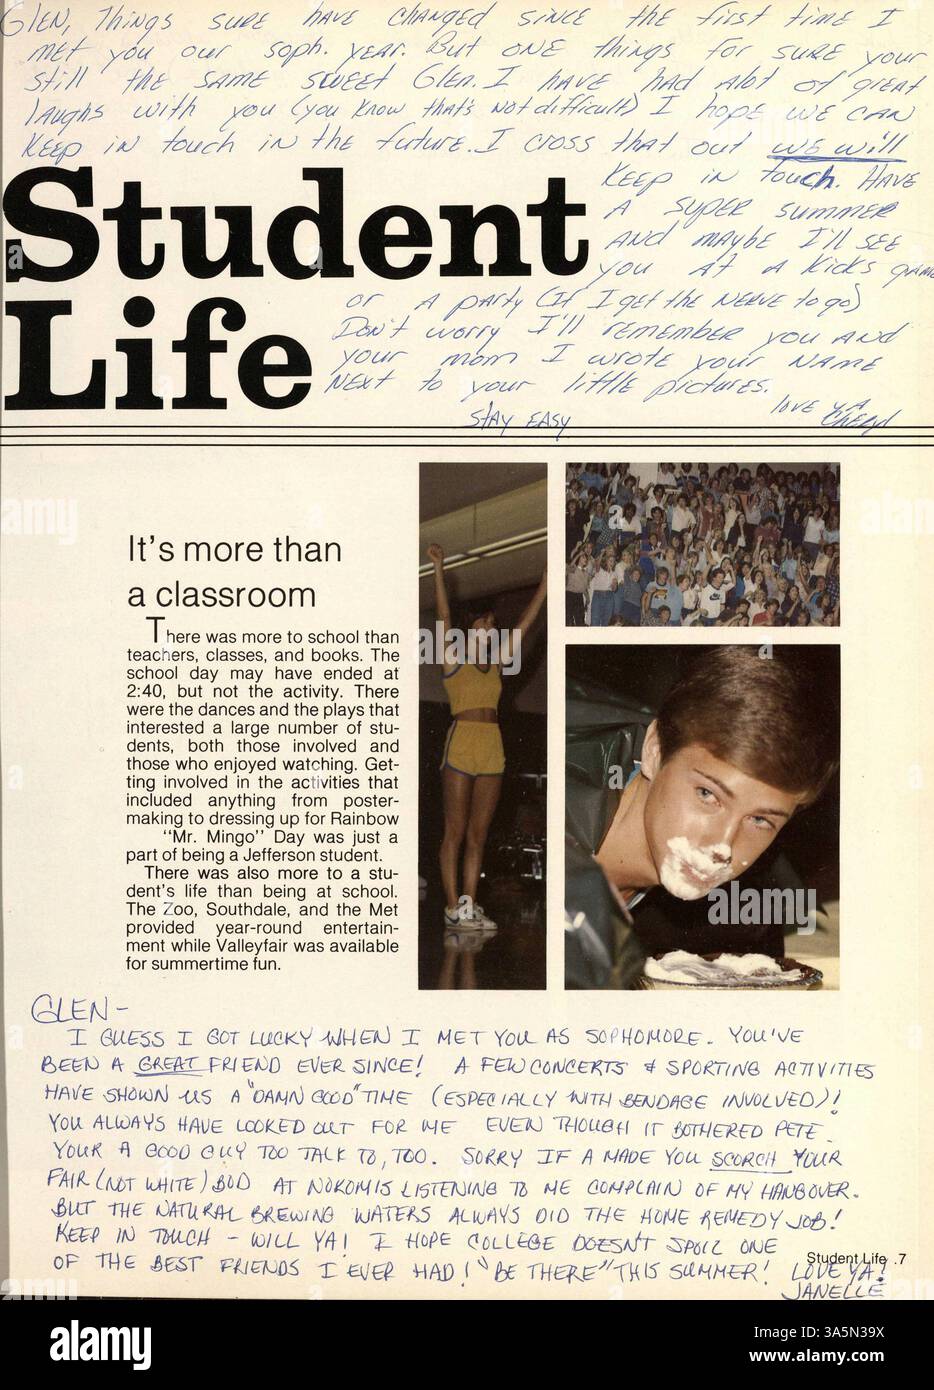 Glen, Things sure have changed since the first time I
met you our soph. year. But one things for sure your
still the same sweet Glen. I have had alot of great
laughs with you (you know that's not difficult) I hope we can
keep in touch in the future. I cross that out we will
keep in touch. Have
a super summer
and maybe I'll see
you at a Kicks game
or a party (If I get the nerve to go)
Don't worry I'll remember you and
your mom I wrote your name
next to your little pictures.
love ya
Stay Easy
Cheryl
Student
Life
It's more than
a classroom
There was more to school than
teachers, classes, and books. The
school day may have ended at
2:40, but not the activity. There
were the dances and the plays that
interested a large number of stu-
dents, both those involved and
those who enjoyed watching. Get-
ting involved in the activities that
included anything from poster-
making to dressing up for Rainbow
"Mr. Mingo" Day was just a
part of being a Jefferson student.
There was also more to a stu-
dent's life than being at school.
The Zoo, Southdale, and the Met
provided year-round entertain-
ment while Valleyfair was available
for summertime fun.
GLEN-
I GUESS I GOT LUCKY WHEN I MET YOU AS SOPHOMORE. YOU'VE
BEEN A GREAT FRIEND EVER SINCE! A FEW CONCERTS & SPORTING ACTIVITIES
HAVE SHOWN US A "DAMN GOOD" TIME (ESPECIALLY WITH BENDAGE INVOLVED)!
YOU ALWAYS HAVE LOOKED OUT FOR ME EVEN THOUGH IT BOTHERED PETE.
YOUR A GOOD GUY TOO TALK TO, TOO. SORRY IF A MADE YOU SCORCH YOUR
FAIR (NOT WHITE) BOD AT NOKOMIS LISTENING TO ME COMPLAIN OF MY HANGOVER.
BUT THE NATURAL BREWING WATERS ALWAYS DID THE HOME REMEDY JOB!
KEEP IN TOUCH - WILL YA! I HOPE COLLEGE DOESN'T SPOIL ONE
OF THE BEST FRIENDS I EVER HAD! "BE THERE" THIS SUMMER! LOVE YA!
JANELLE
Student Life .7
alamy
Image ID: 3A5N39X
www.alamy.com